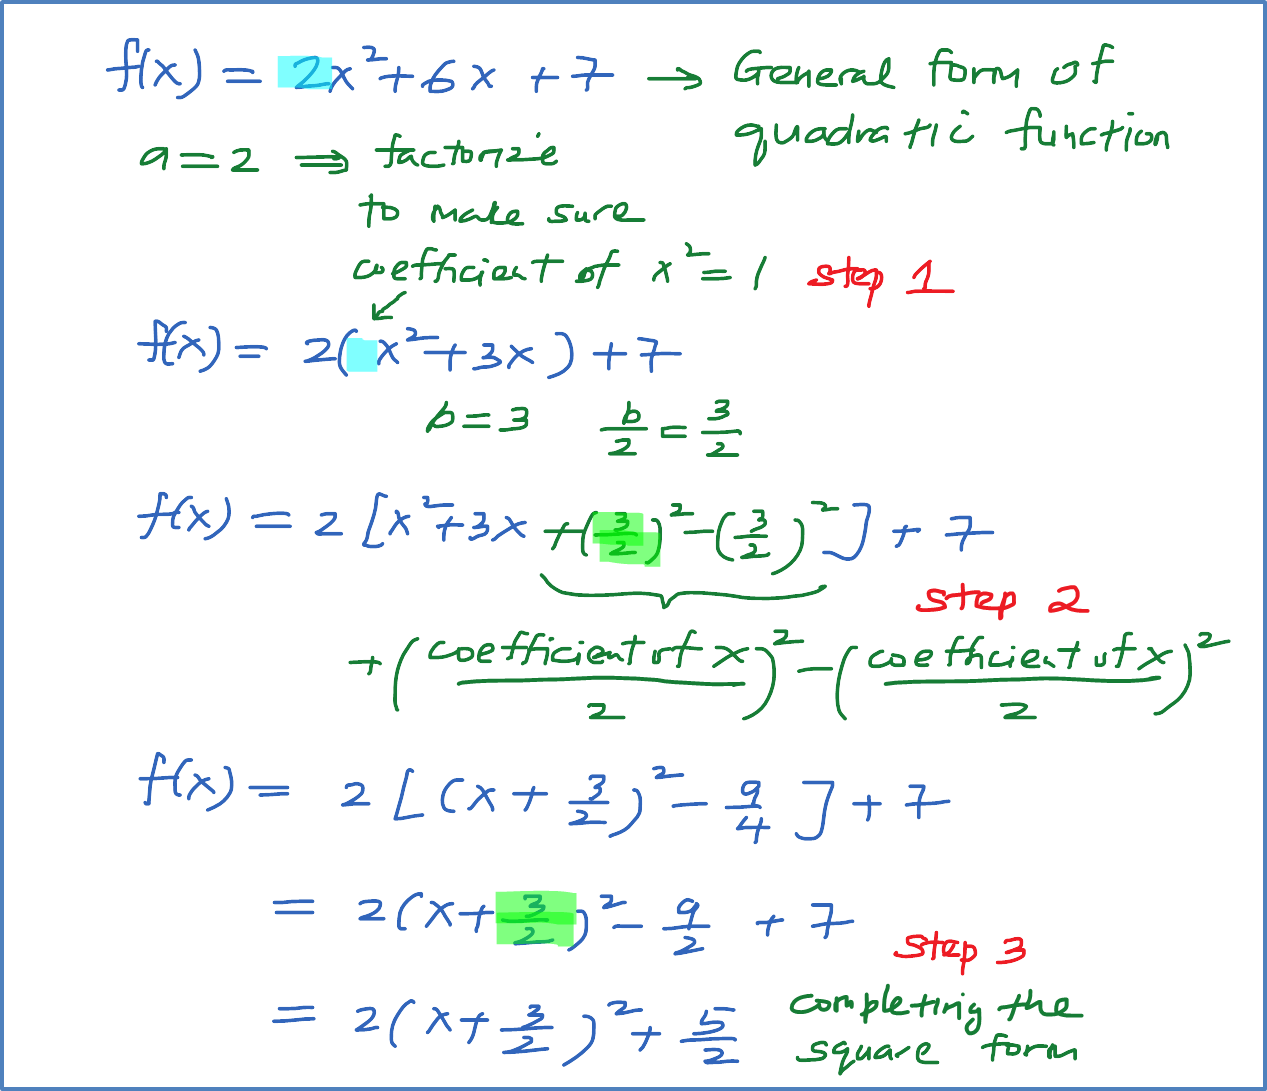 f(x) = 2x² + 6x + 7 → General form of
quadratic function
a = 2 ⇒ factorize
to make sure
coefficient of x² = 1 step 1
f(x) = 2(x² + 3x) + 7
b = 3 b/2 = 3/2
f(x) = 2[x² + 3x + (3/2)² − (3/2)²] + 7
step 2
+ (coefficient of x / 2)² − (coefficient of x / 2)²
f(x) = 2[(x + 3/2)² − 9/4] + 7
= 2(x + 3/2)² − 9/2 + 7
step 3
= 2(x + 3/2)² + 5/2 completing the
square form